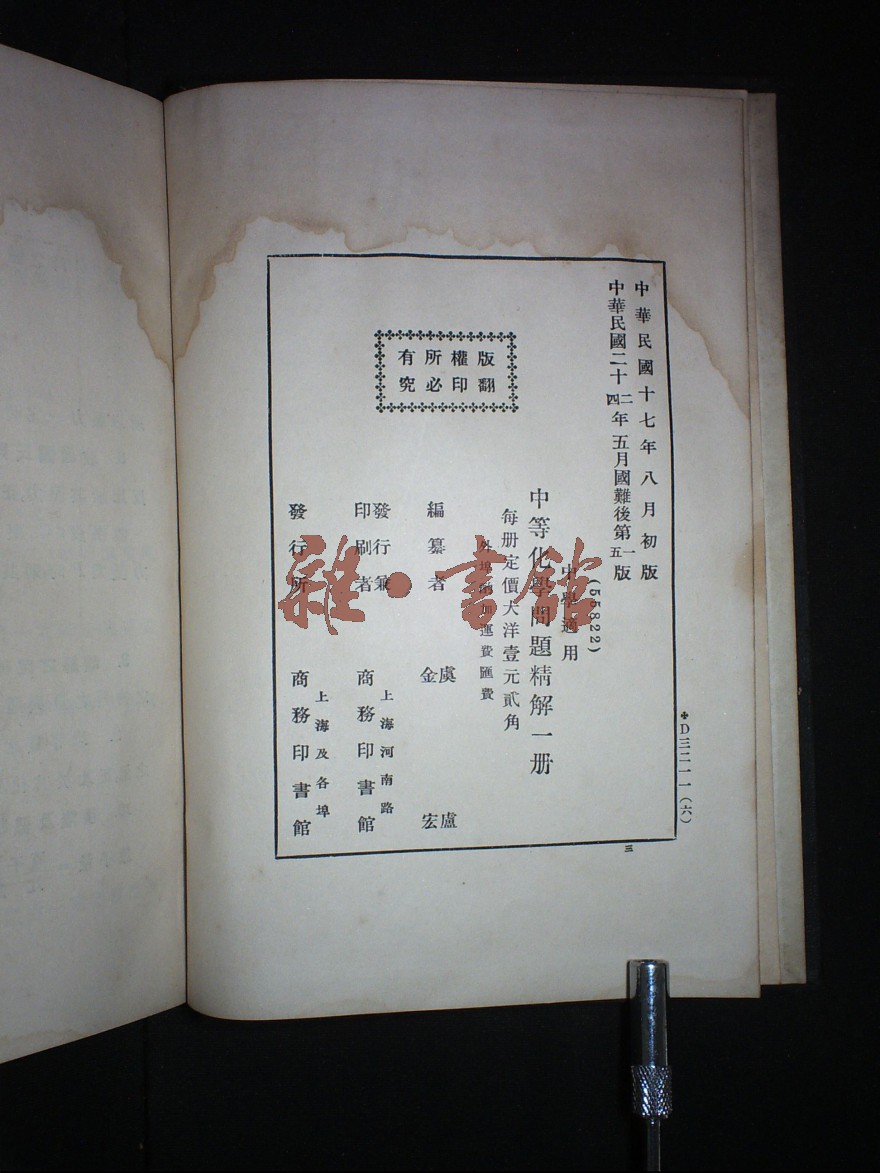 中華民國十七年八月初版
中華民國二十二四年五月國難後第一五版
(55822)
中學適用
中等化學問題精解一册
每册定價大洋壹元貳角
外埠酌加運費匯費
版權所有
翻印必究
編纂者
虞 盧
金 宏
發行兼
印刷者
上海河南路
商務印書館
發行所
上海及各埠
商務印書館
✤D三二一一(六)
三
雜·書館